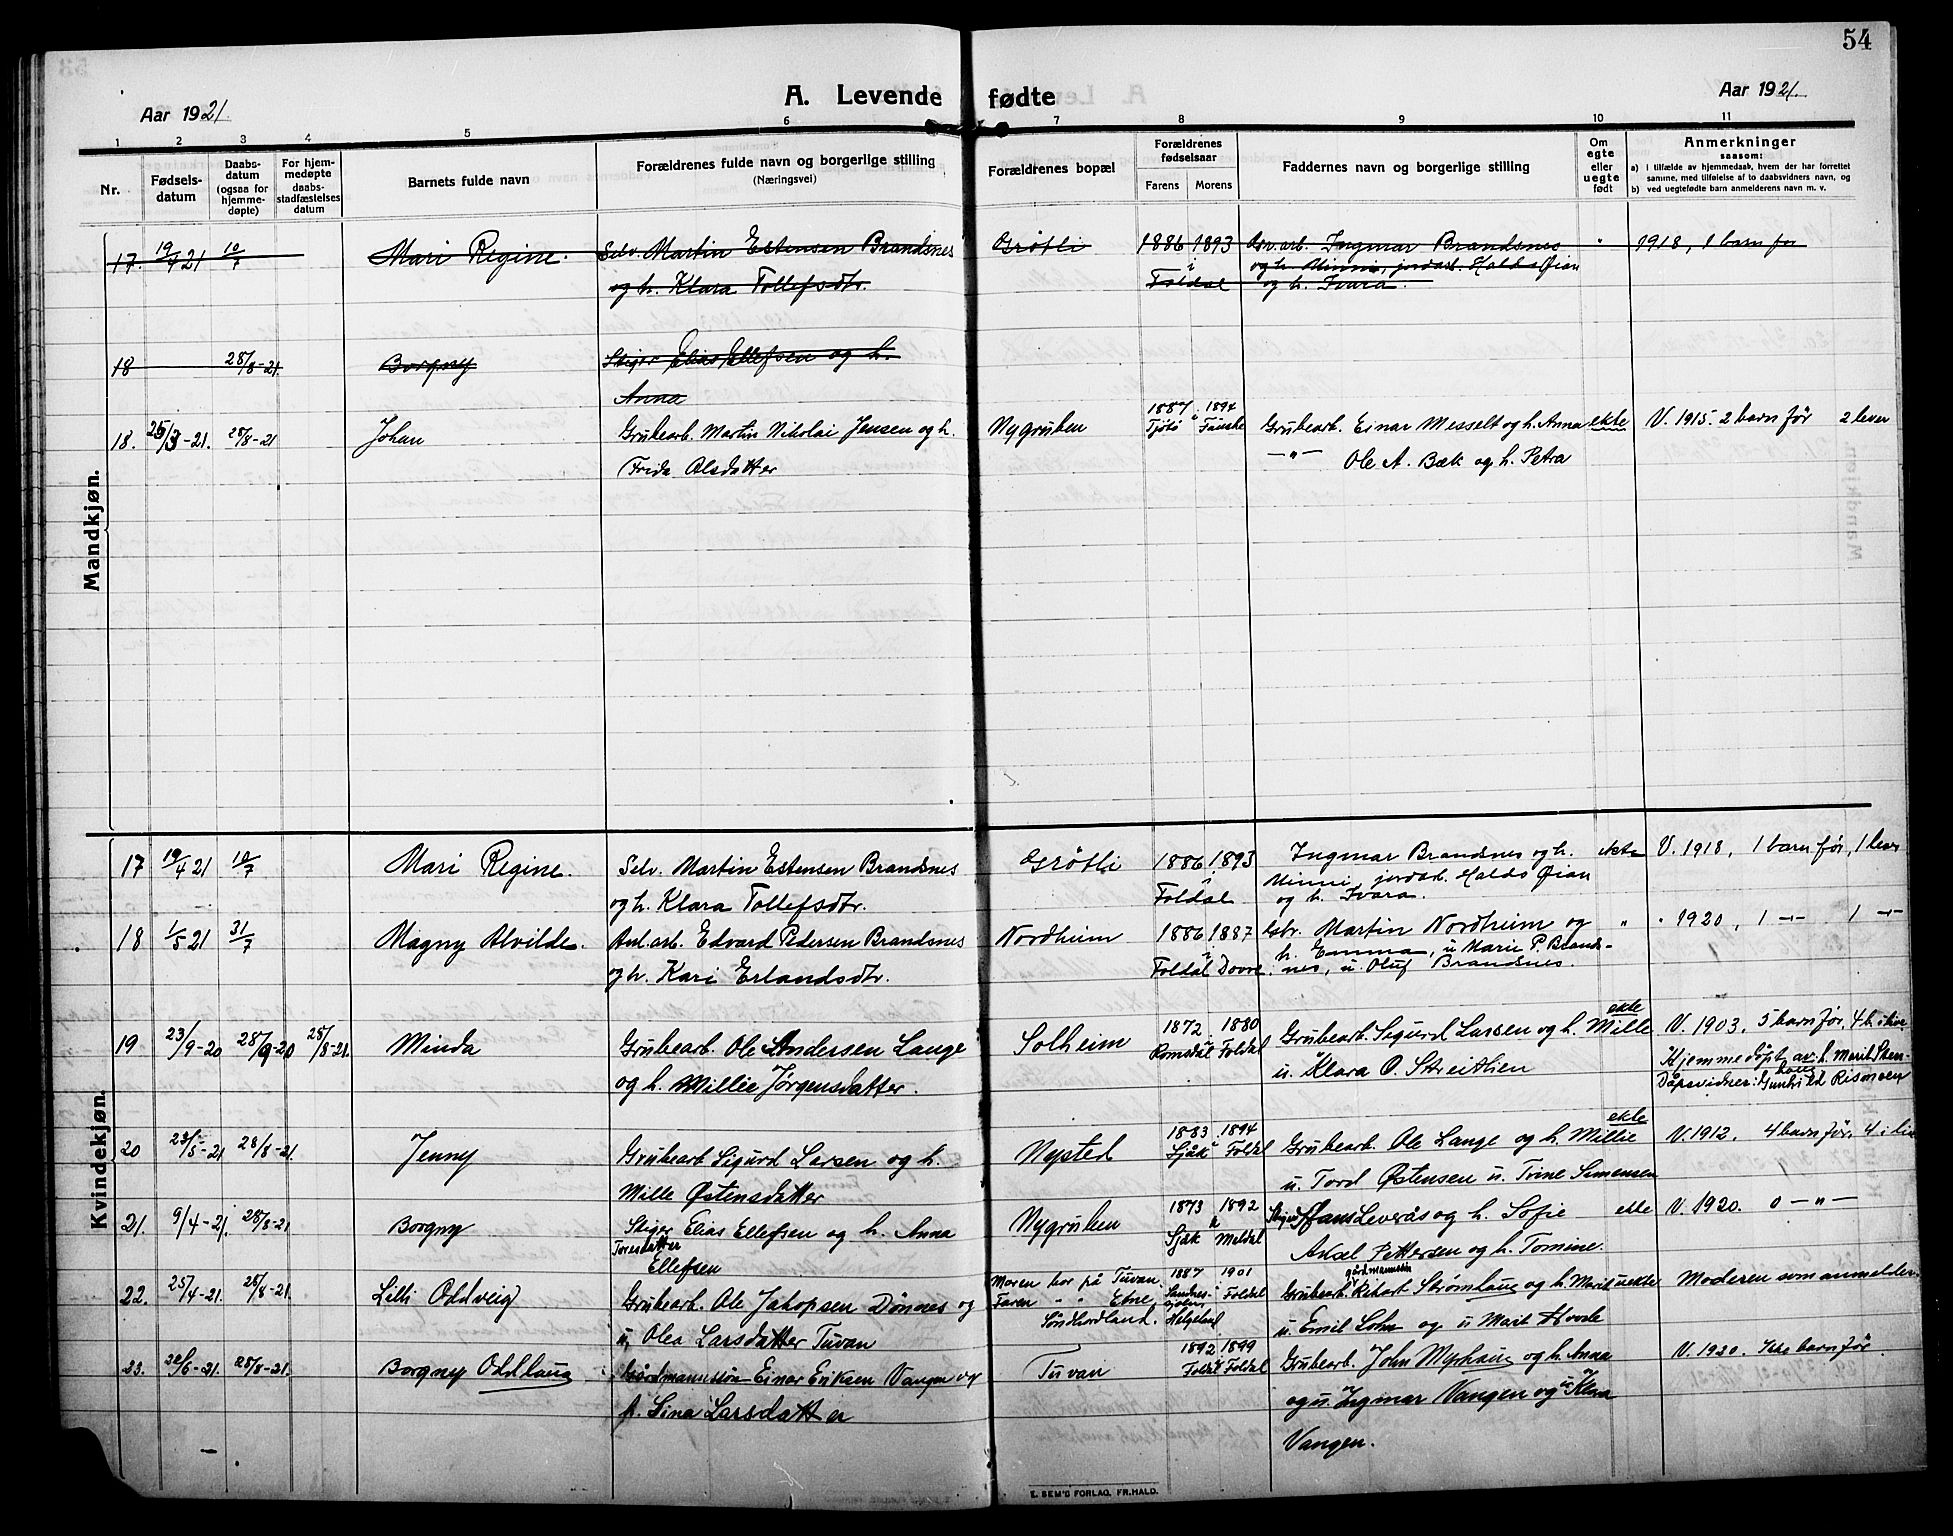 54
Aar 1921.
A. Levende fødte
Aar 1921.
1 2 3 4 5 6 7 8 9 10 11
Nr.
Fødsels-
datum
Daabs-
datum
(ogsaa for
hjemme-
døpte)
For hjem-
medøpte
daabs-
stadfæstelses
datum
Barnets fulde navn
Forældrenes fulde navn og borgerlige stilling
(Næringsvei)
Forældrenes bopæl
Forældrenes
fødselsaar
Farens Morens
Faddernes navn og borgerlige stilling
Om
egte
eller
uegte
født
Anmerkninger
saasom:
a) i tilfælde av hjemmedaab, hvem der har forrettet
samme, med tilføielse af to daabsvidners navn, og
b) ved uegtefødte barn anmelderens navn m. v.
Mandkjøn.
17. 19/4 21 10/7 Mari Regine. Selv. Martin Estensen Brandsnes Grøtli 1886 1893 Ingmar Brandsnes " 1918, 1 barn før
og h. Klara Tollefsdtr. i Foldal og h. Minni, jordarb. Halds Øian
og h. Ivara.
18 28/8-21. Borgny Stiger Elias Ellefsen og h.
Anna
18. 25/3-21. 28/8-21 Johan Grubearb. Martin Nikolai Jensen og h. Nygruben 1887 Tjøtø 1894 Fauske Grubearb. Einar Messelt og h. Anna ekte V. 1915. 2 barn før 2 lever
Frida Olsdatter —"— Ole A. Bæk og h. Petra
Kvindekjøn.
17 19/4 21 10/7 Mari Regine. Selv. Martin Estensen Brandsnes Grøtli 1886 1893 Ingmar Brandsnes og h. ekte V. 1918, 1 barn før, 1 lever
og h. Klara Tollefsdtr. i Foldal Minni, jordarb. Halds Øian
og h. Ivara.
18 1/5 21 31/7 Magny Alvilde. Anl. arb. Edvard Pedersen Brandsnes Nordheim 1886 1887 Gbr. Martin Nordheim og " " 1920, 1 —"— 1 —"—
og h. Kari Erlandsdtr. Foldal i Dovre h. Emma, u. Marie P. Brands-
nes, u. Oluf Brandsnes.
19 23/9-20 28/9-20 28/8-21. Minda Grubearb. Ole Andersen Lange Solheim 1872 Romsdal 1880 Foldal Grubearb. Sigurd Larsen og h. Mille ekte V. 1903. 5 barn før, 4 b. i live
og h. Millie Jørgensdatter. u. Klara O. Streitlien Hjemmedøpt av h. Marit Steen-
haug
Dåpsvidner: Gunhild Rismoen
20 23/5-21 28/8-21. Jenny Grubearb Sigurd Larsen og h. Nysted 1883 Sjåk 1894 Foldal Grubearb. Ole Lange og h. Millie ekte V. 1912. 4 barn før, 4 i live
Mille Østensdatter u. Tord Østensen u. Trine Simensen
21. 9/4-21. 28/8-21 Borgny Stiger Elias Ellefsen og h. Anna Nygruben 1873 Sjåk 1892 Meldal Stiger Hans Leverås og h. Sofie ekte V. 1920. 0 —"—
Toresdatter
Ellefsen Aksel Pettersen og h. Tomine.
22. 25/4-21. 28/8-21. Lilli Oddveig Grubearb. Ole Jakopsen Dønnes og Moren bor på Tuvan. 1887 1901 Foldal Grubearb. Rikart Strømhaug og h. Marit uekte Moderen som anmelder.
gårdmannssøn
u. Olea Larsdatter Tuvan Faren " Etne, Søndhordland. Helgeland u. Emil Lohn og u Marit Hovde
23. 22/6-21. 28/8-21. Borgny Oddlaug Gårdmannssøn Einar Eriksen Vangen og Tuvan 1892 Foldal 1899 Foldal Grubearb. John Myhaug og h. Anna V. 1920. Ikke barn før.
h. Lina Larsdatter og u. Ingmar Vangen og u. Klara
Vangen.
E. SEM'S FORLAG, FR.HALD.